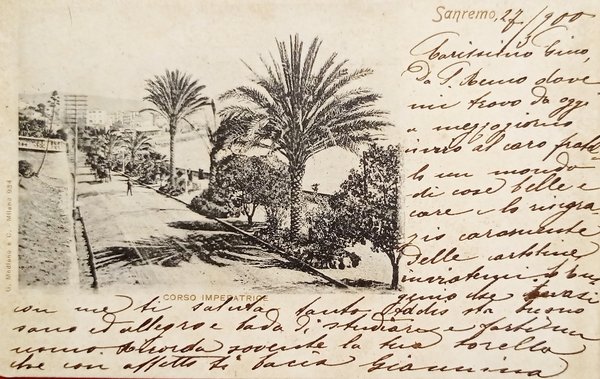 Sanremo, 27/3/900
Carissimo Gino,
Da S. Remo dove
mi trovo da oggi
a mezzogiorno
invio al caro fratel
lo un mondo
di cose belle e
care e lo ringra
zio caramente
delle cartoline
inviatemi
con me ti saluta tanto. Addio sta buono
sano ed allegro e bada di studiare e farti un
uomo. Ricorda sovente la tua sorella
che con affetto ti bacia Giannina
CORSO IMPERATRICE
G. Modiano & C. Milano 984